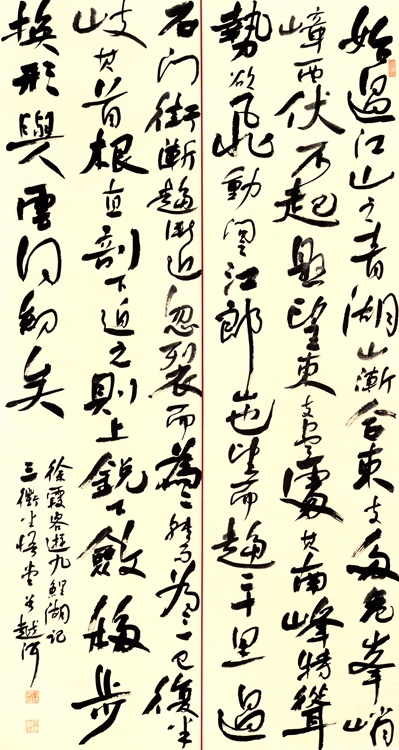 始過江山之青湖山漸合東支多危峯峭
嶂西伏不起懸望東支盡處其南峰特聳
勢欲飛動問江郎山也望而趨二十里過
石门街漸趨漸近忽裂而為二轉而為三已復半
岐其首根直剖下迫之則上銳下斂移步
換形與雲同幻矣
徐霞客遊九鯉湖記
三衢